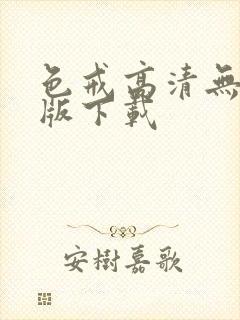 色戒高清無
版下載
安樹嘉歌